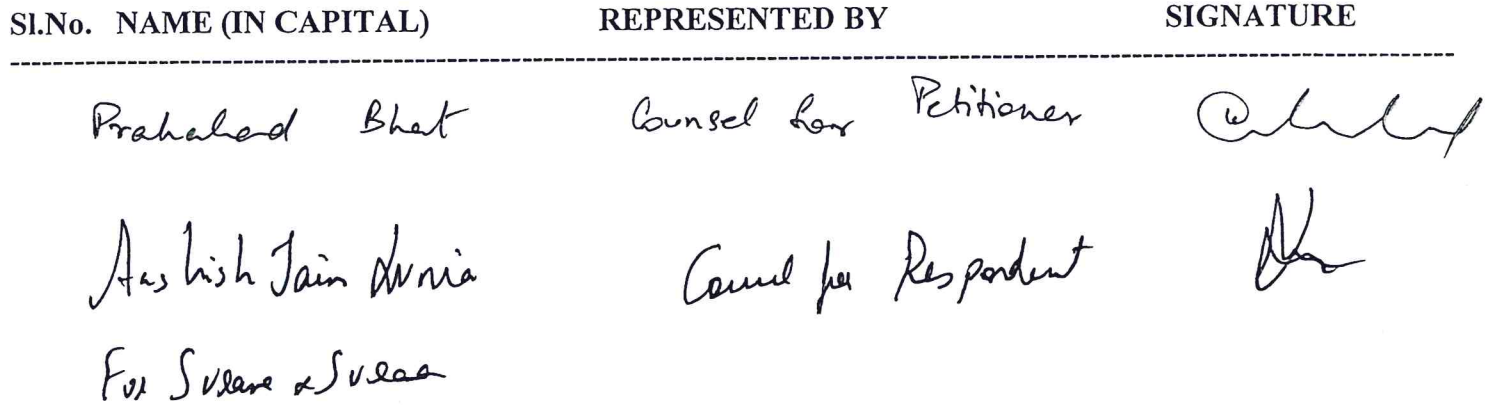 Sl.No. NAME (IN CAPITAL) REPRESENTED BY SIGNATURE
Prahalad Bhat Counsel for Petitioner
Aashish Jain Lunia Counsel for Respondent
For